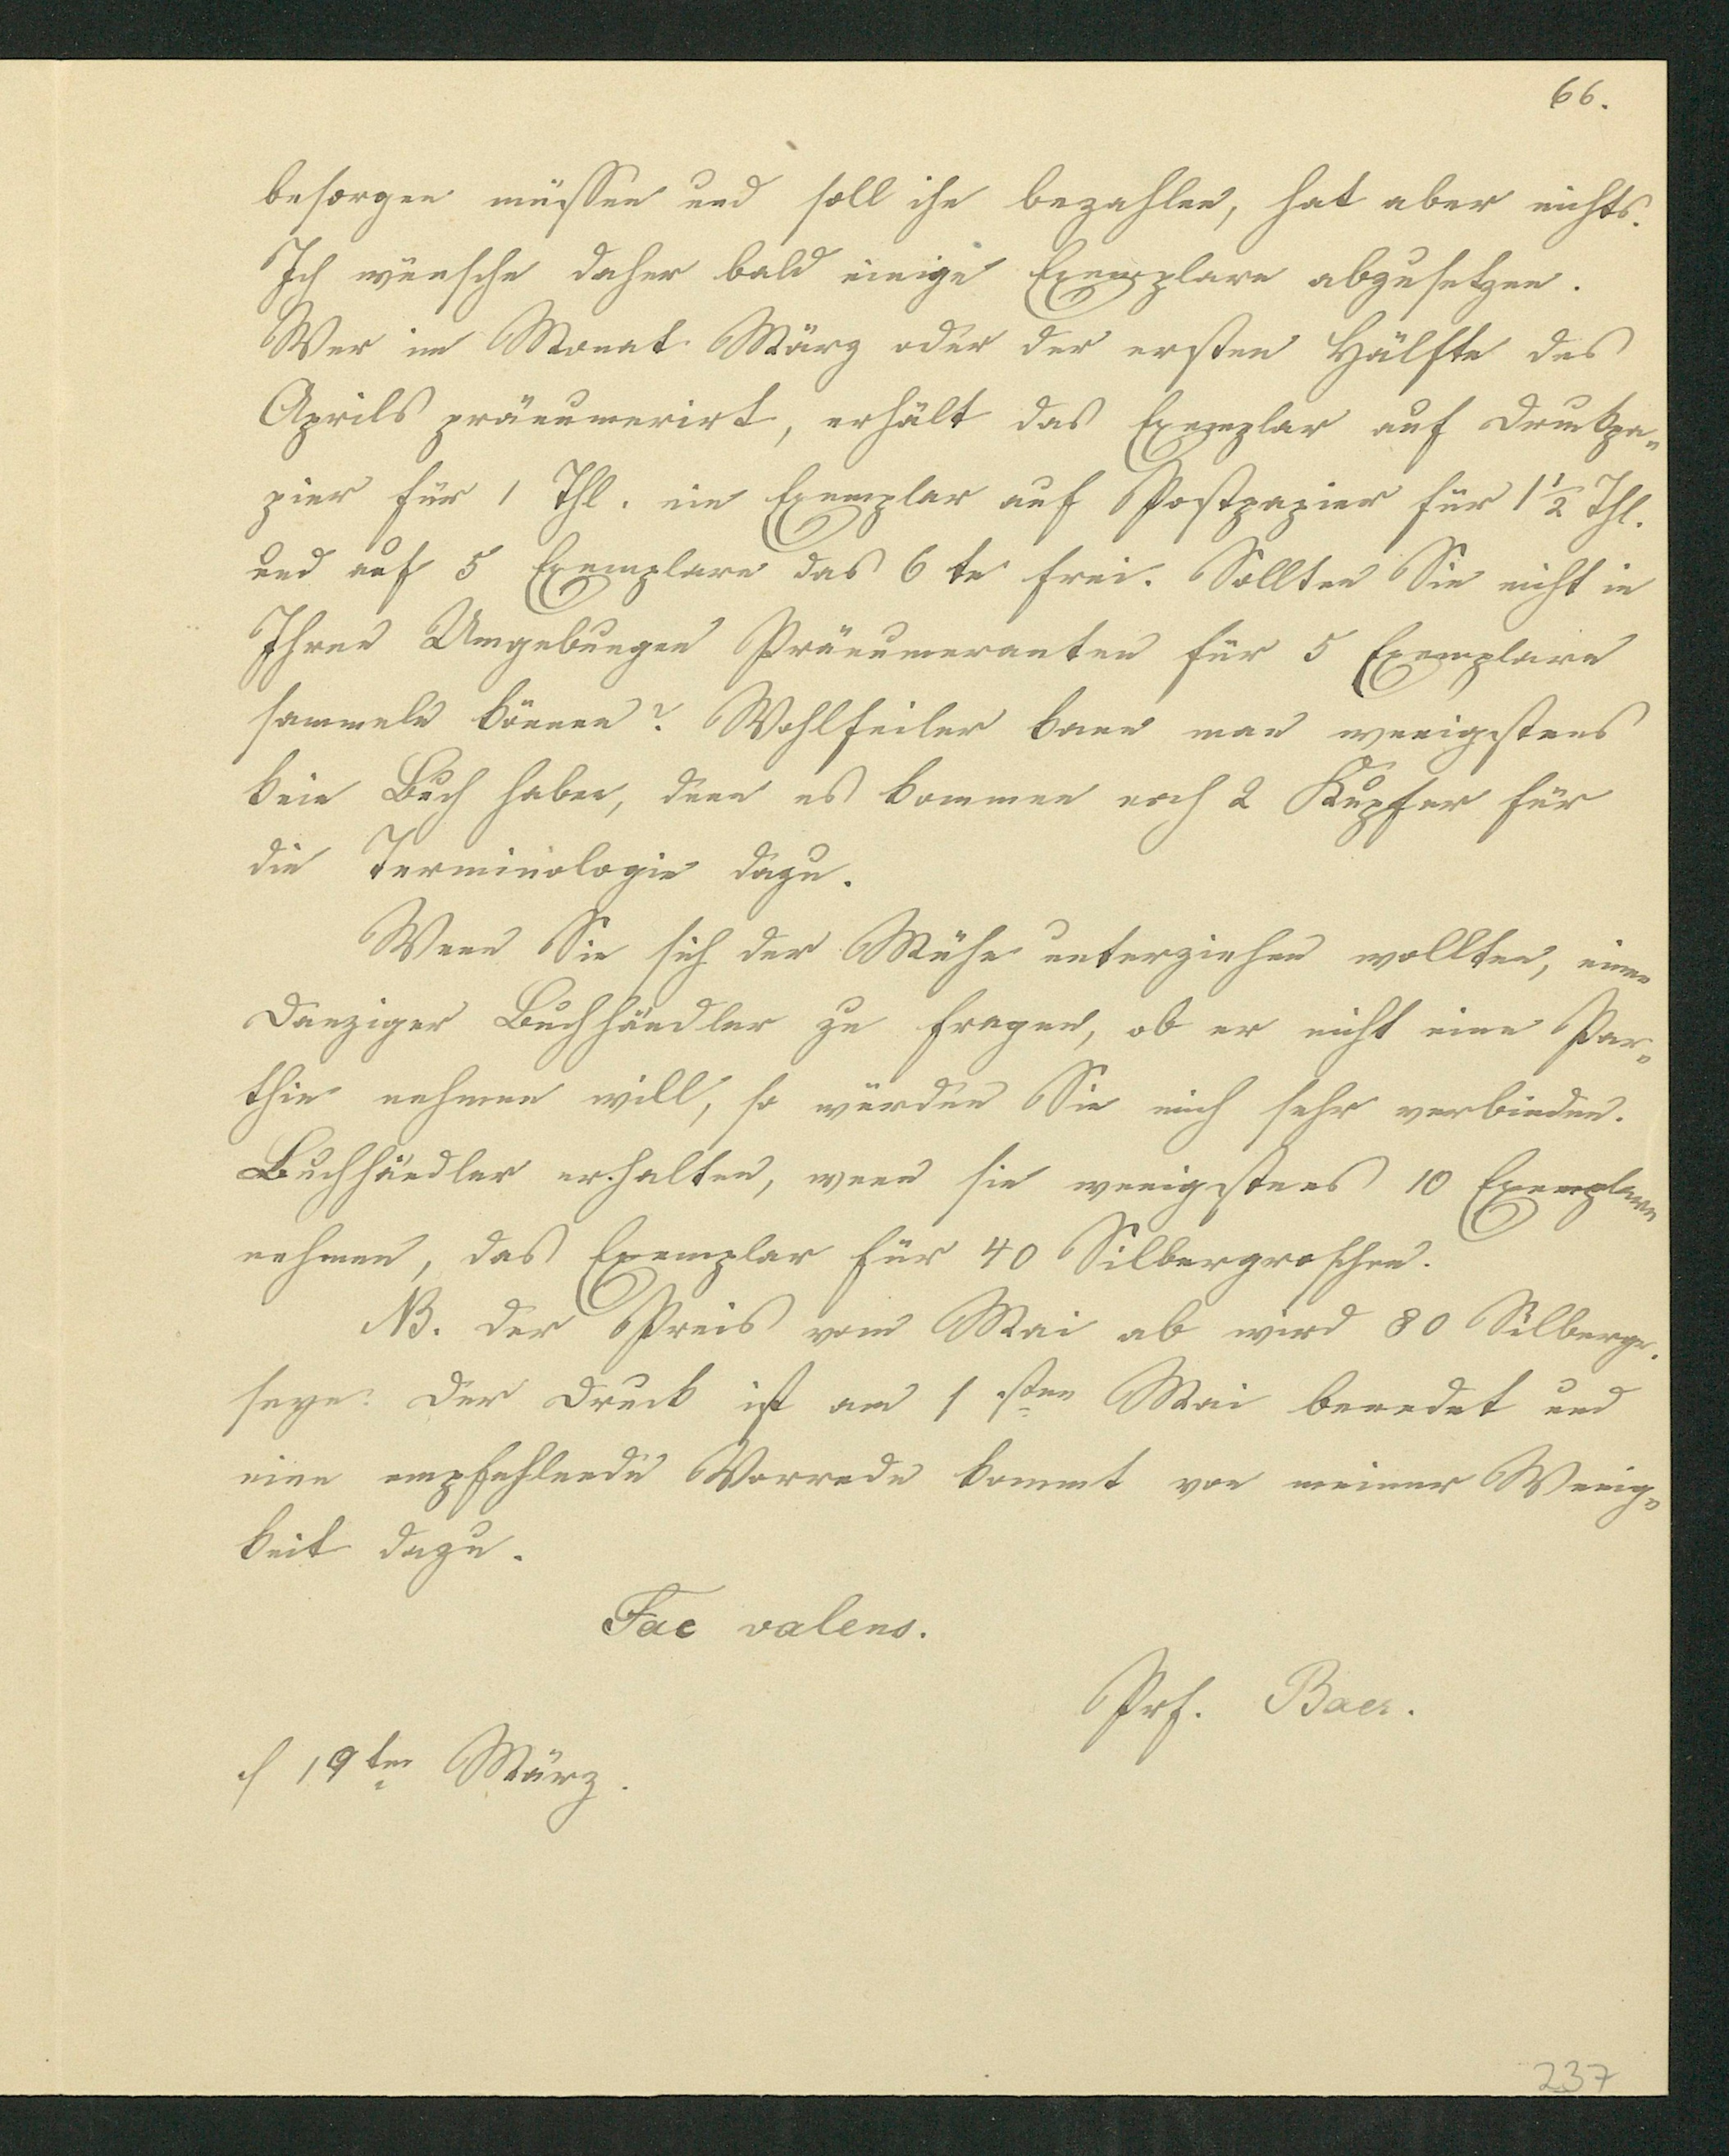 66.
besorgen müssen und soll ihn bezahlen, hat aber nichts.
Ich wünsche daher bald einige Exemplare abzusetzen.
Wer im Monat März oder der ersten Hälfte des
Aprils pränumerirt, erhält das Exemplar auf Druckpa-
pier für 1 Thl. ein Exemplar auf Postpapier für 1 1/2 Thl.
und auf 5 Exemplare das 6 te frei. Sollten Sie nicht in
Ihren Umgebungen Pränumeranten für 5 Exemplare
sammeln können? Wohlfeiler kann man wenigstens
kein Buch haben, denn es kommen noch 2 Kupfer für
die Terminologie dazu.
Wenn Sie sich der Mühe unterziehen wollten, einen
Danziger Buchhändler zu fragen, ob er nicht eine Par-
thie nehmen will, so würden Sie mich sehr verbinden.
Buchhändler erhalten, wenn sie wenigstens 10 Exemplare
nehmen, das Exemplar für 40 Silbergroschen.
NB. Der Preis vom Mai ab wird 80 Silbergr.
seyn. Der Druck ist am 1 sten Mai beendet und
eine empfehlende Vorrede kommt von meiner Wenig-
keit dazu.
Fac valeas.
Prf. Baer.
19ten März.
237